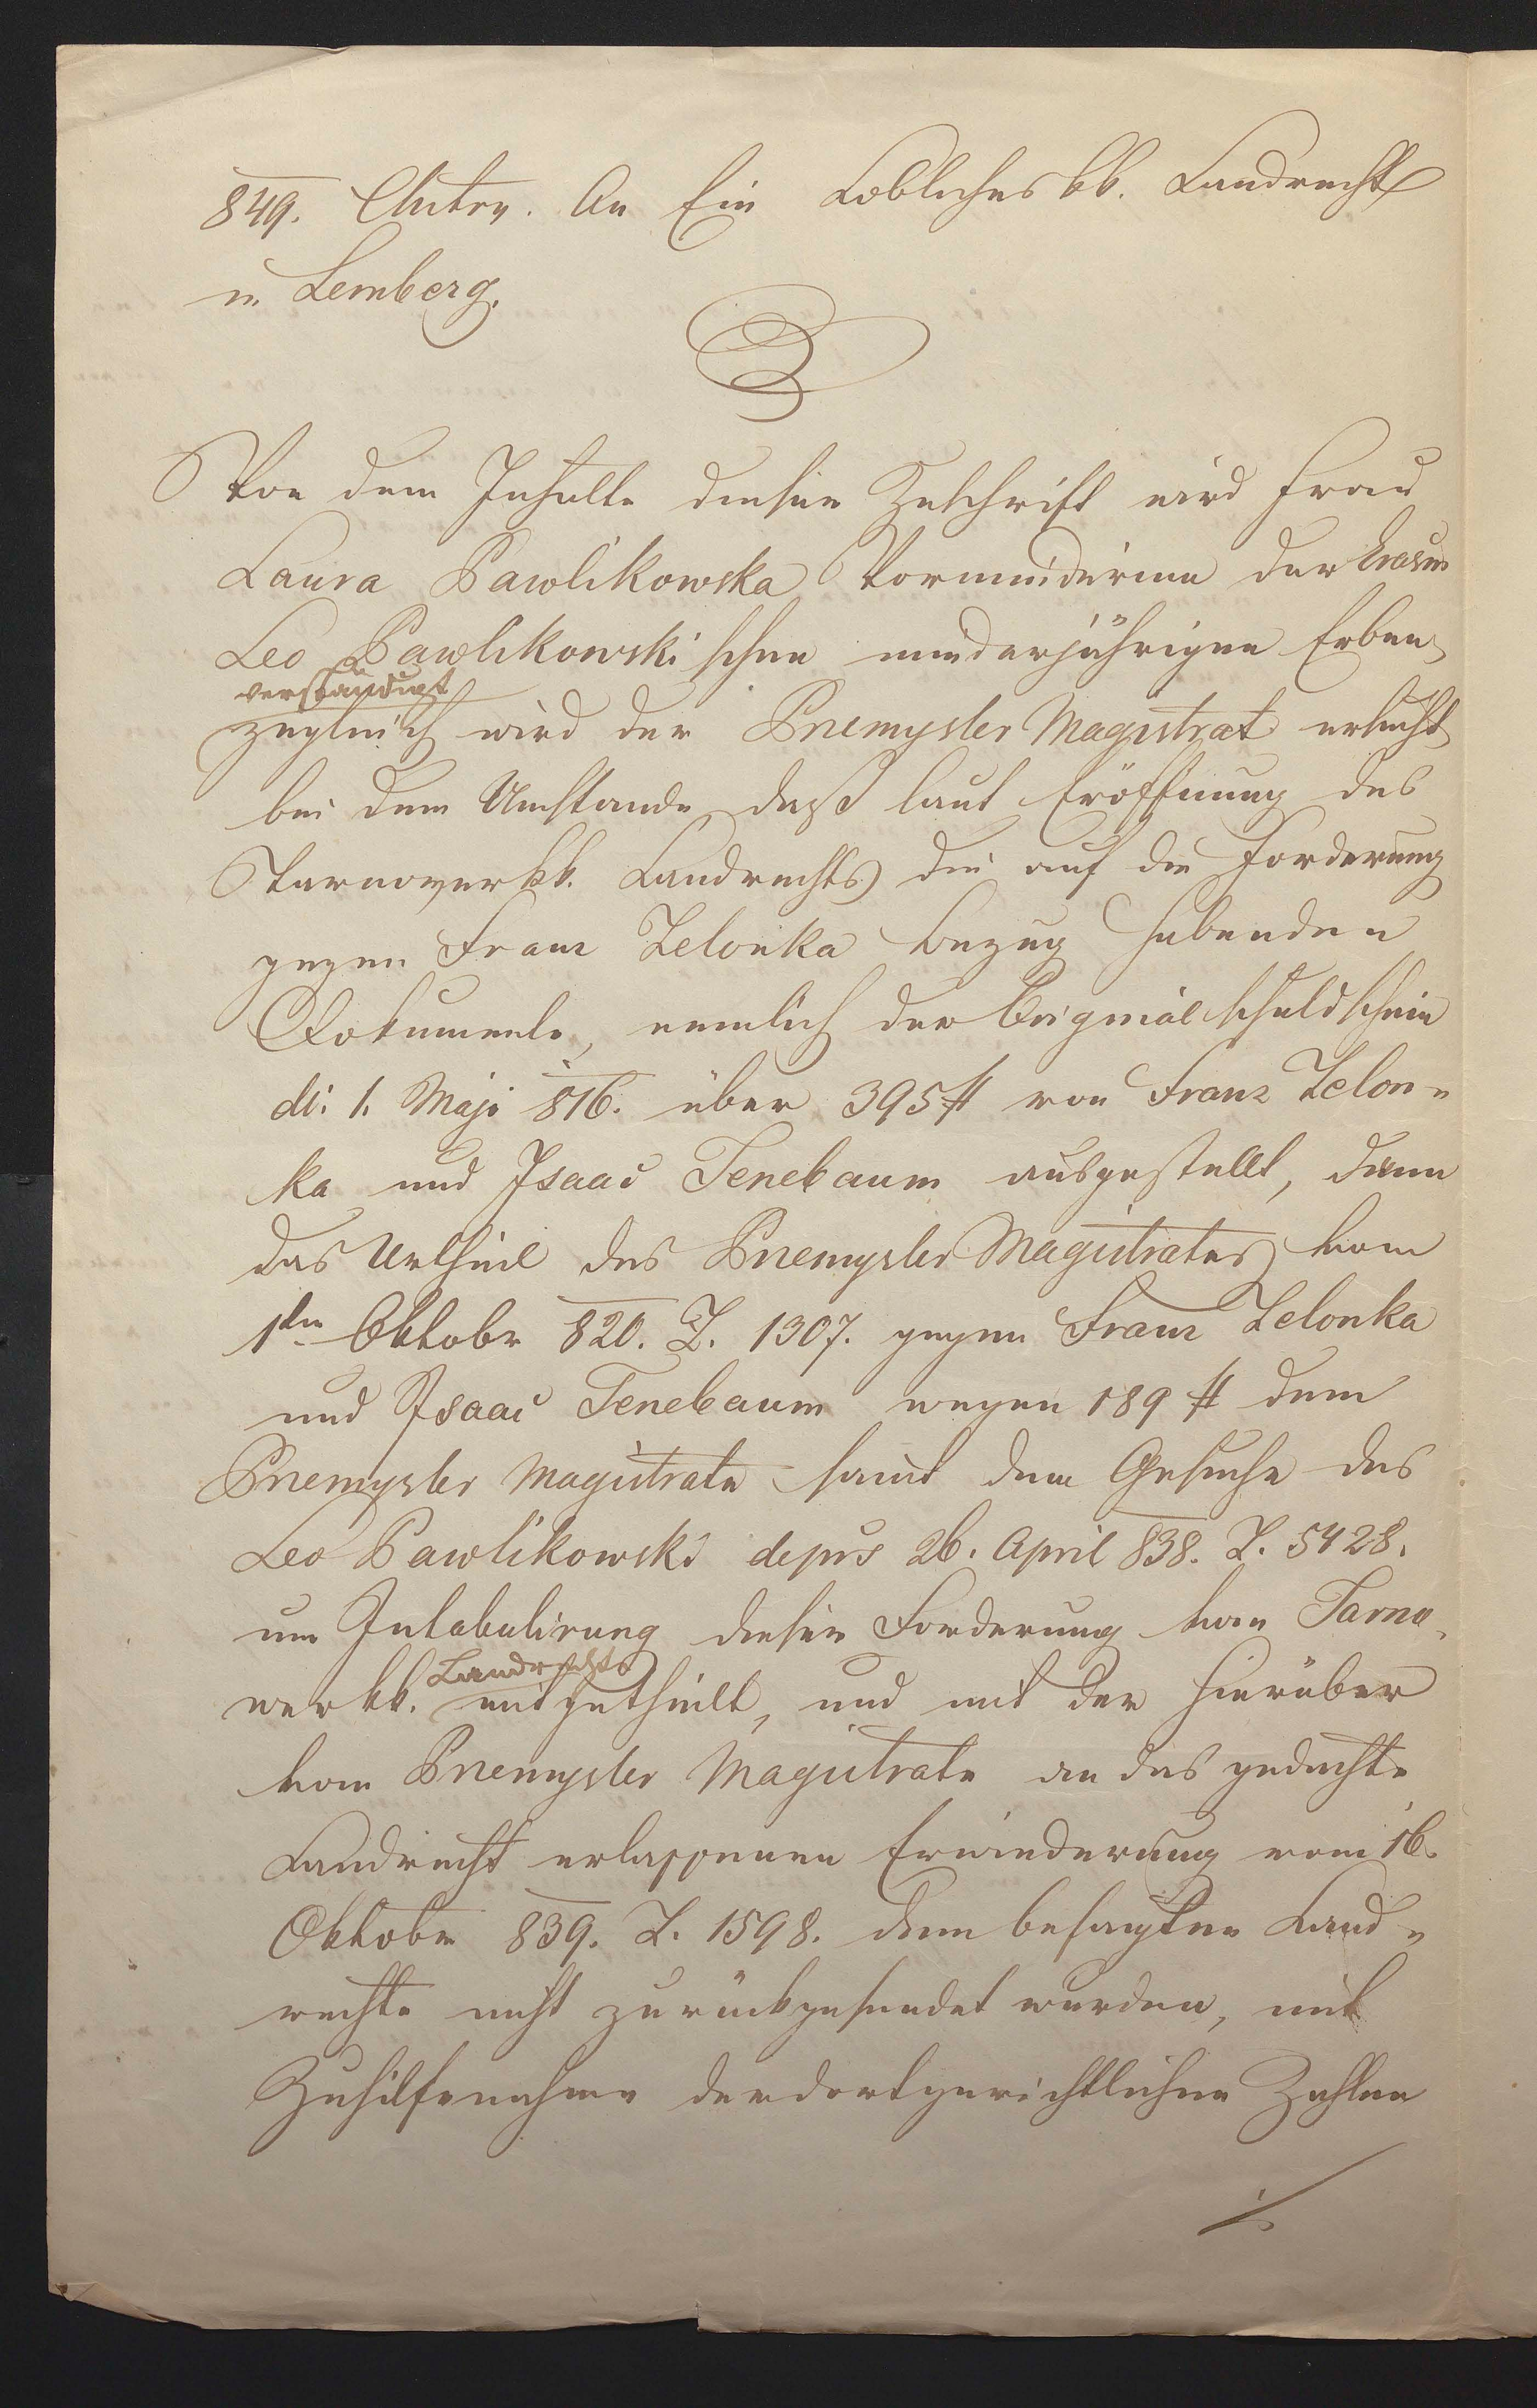 849. An Ein Lobliches kk. Landrecht
in Lemberg.
Von dem Inhalte dieser Zuschrift wird Frau
Laura Pawlikowska Vormünderinn der
Leo Pawlikowskischen minderjährigen Erben,
verständigt
zugleich wird der Przemysler Magistrat ersucht,
bei dem Umstande, daß laut Eröffnung des
Tarnower kk. Landrechts die auf die Forderung
gegen Franz Zelonka bezug habenden
Dokumente, nemlich der Original schuldschein
dt. 1. Maji 816. über 395 # von Franz Zelon-
ka und Isaac Tenebaum ausgestellt, dann
das Urtheil des Przemysler Magistrates vom
1ten Oktober 820. Z. 1307. gegen Franz Zelonka
und Isaac Tenebaum wegen 189 # dem
Przemysler Magistrate samt dem Gesuche des
Leo Pawlikowski de prs 26. April 838. Z. 5428.
um Intabulirung dieser Forderung vom Tarno-
Landrechte
wer kk. mitgetheilt, und mit der hierüber
vom Przemysler Magistrate an das gedachte
Landrecht erlassenen Erwiederung vom 16.
Oktober 839. Z. 1598. dem besagten Land-
rechte nicht zurückgesendet wurden, mit
Zuhilfenahme der dortgerichtlichen Zahlen
./.